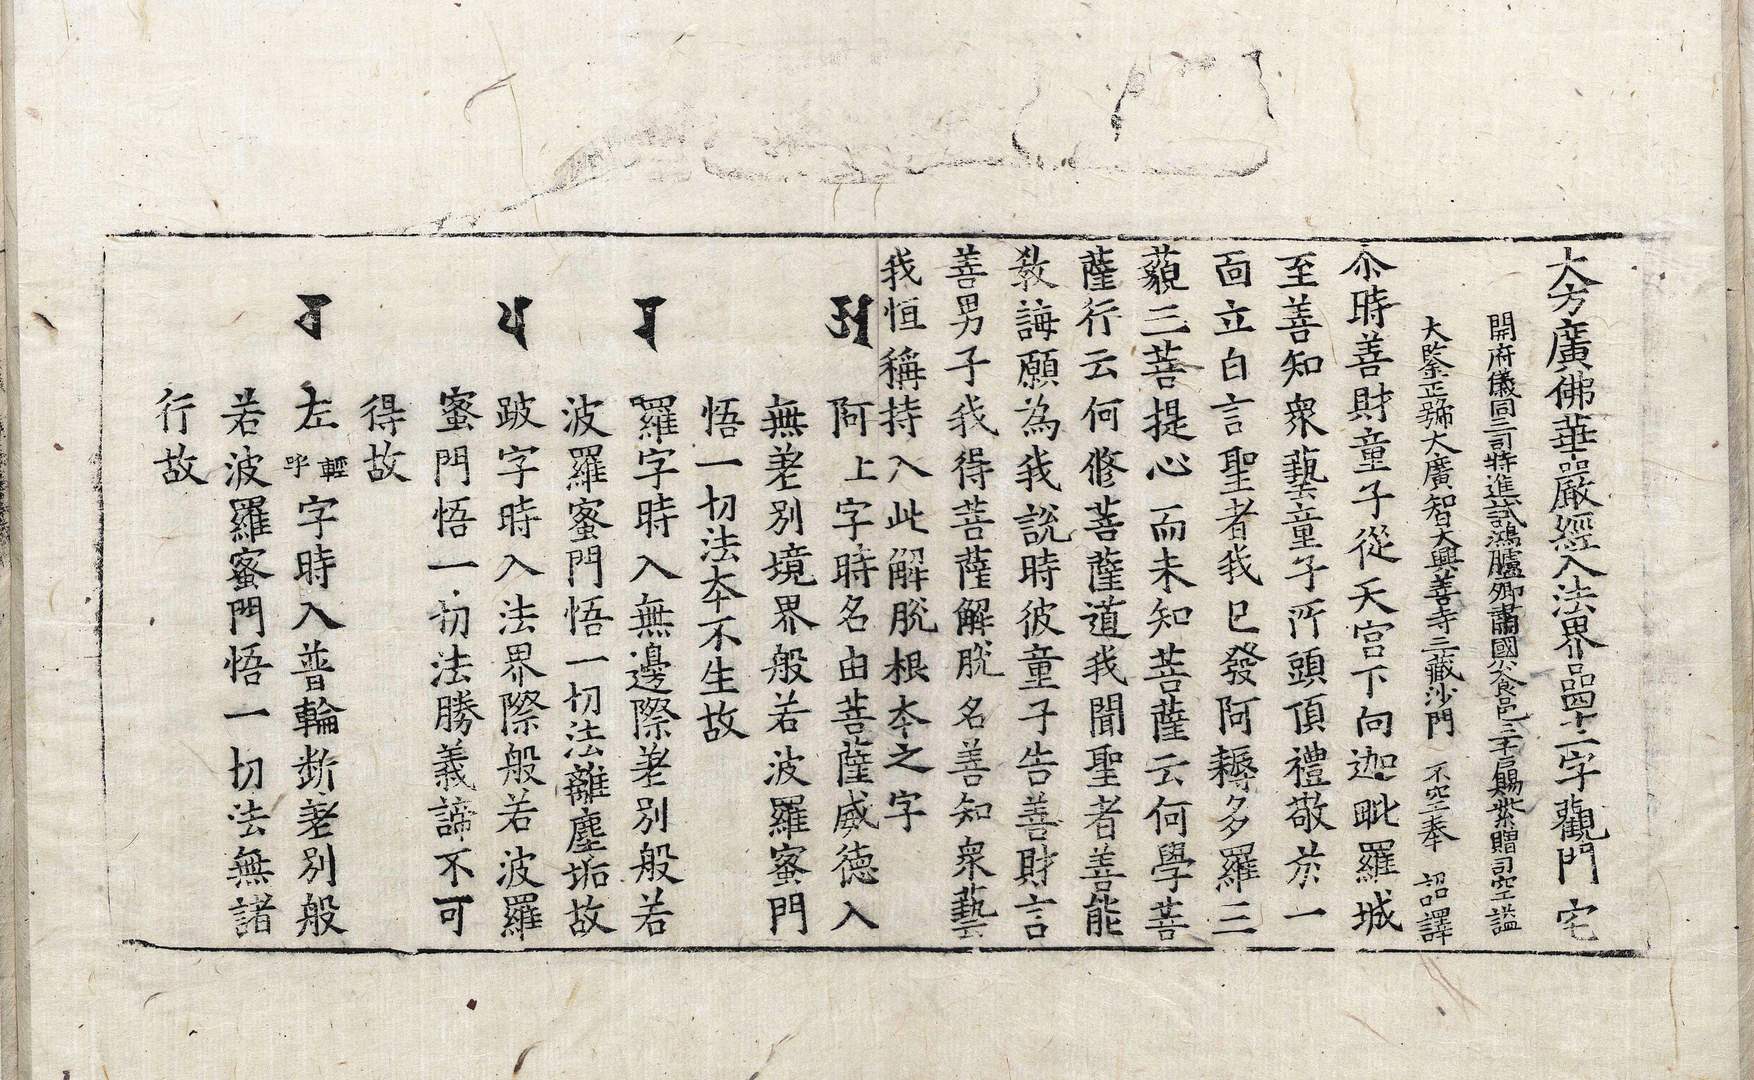 大方廣佛華嚴經入法界品四十二字觀門 宅
開府儀同三司特進試鴻臚卿肅國公食邑三千戶賜紫贈司空謚
大鍳正號大廣智大興善寺三藏沙門 不空奉 詔譯
尒時善財童子從天宮下向迦毗羅城
至善知衆藝童子所頭頂禮敬於一
面立白言聖者我已發阿耨多羅三
藐三菩提心而未知菩薩云何學菩
薩行云何修菩薩道我聞聖者善能
教誨願為我說時彼童子告善財言
善男子我得菩薩解脫名善知衆藝
我恒稱持入此解脫根本之字
𑖀 阿上字時名由菩薩威德入
無差別境界般若波羅蜜門
悟一切法本不生故
𑖨 羅字時入無邊際差別般若
波羅蜜門悟一切法離塵垢故
𑖢 跛字時入法界際般若波羅
蜜門悟一切法勝義諦不可
得故
𑖓 左輕呼字時入普輪斷差別般
若波羅蜜門悟一切法無諸
行故